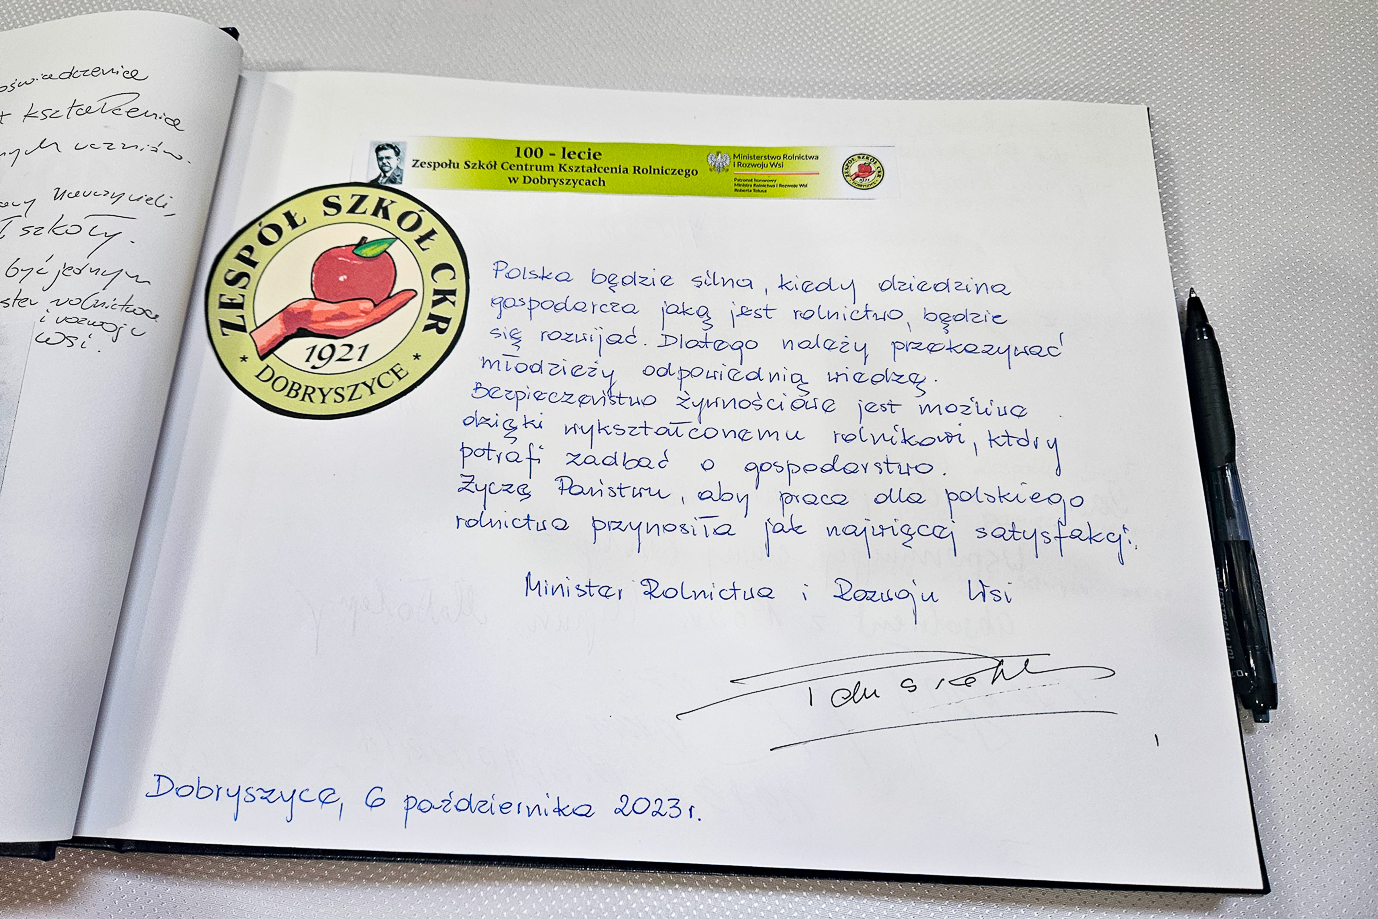 kształcenia
uczniów.
nauczycieli,
szkoły.
być jednym
rolnictwa
i rozwoju
wsi.
100 - lecie
Zespołu Szkół Centrum Kształcenia Rolniczego
w Dobryszycach
Ministerstwo Rolnictwa
i Rozwoju Wsi
Patronat honorowy
Ministra Rolnictwa i Rozwoju Wsi
Roberta Telusa
ZESPÓŁ SZKÓŁ CKR
1921
* DOBRYSZYCE *
ZESPÓŁ SZKÓŁ CKR
1921
Polska będzie silna, kiedy dziedzina
gospodarcza jaką jest rolnictwo, będzie
się rozwijać. Dlatego należy przekazywać
młodzieży odpowiednią wiedzę.
Bezpieczeństwo żywnościowe jest możliwe
dzięki wykształconemu rolnikowi, który
potrafi zadbać o gospodarstwo.
Życzę Państwu, aby praca dla polskiego
rolnictwa przynosiła jak najwięcej satysfakcji.
Minister Rolnictwa i Rozwoju Wsi
Dobryszyce, 6 października 2023r.